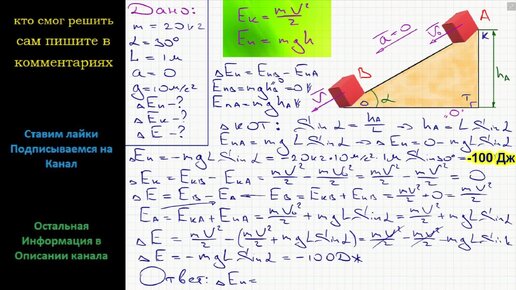 кто смог решить
сам пишите в
комментариях
Ставим лайки
Подписываемся на
Канал
Остальная
Информация в
Описании канала
Дано:
m = 20кг
α = 30°
L = 1м
a = 0
g = 10м/с²
ΔEп - ?
ΔEк - ?
ΔE - ?
Eк = mV²/2
Eп = mgh
a = 0
A
V₀
K
B
V
O
α
T
"0"
hA
ΔEп = EпB - EпA
EпB = mghB = 0
EпA = mghA ≠ 0
ΔKOT: Sinα = hA/L → hA = L Sinα
EпA = mgL Sinα → ΔEп = 0 - mgL Sinα
ΔEп = -mgL Sinα = -20кг·10м/с²·1м Sin30° = -100 Дж
ΔEк = EкB - EкA = mV²/2 - mV₀²/2 = mV²/2 - mV²/2 = 0
ΔE = EB - EA = EB = EкB + EпB = mV²/2 + 0 = mV²/2
EA = EкA + EпA = mV₀²/2 + mgL Sinα = mV²/2 + mgL Sinα
ΔE = mV²/2 - (mV²/2 + mgL Sinα) = mV²/2 - mV²/2 - mgL Sinα
ΔE = -mgL Sinα = -100Дж
Ответ: ΔEп =